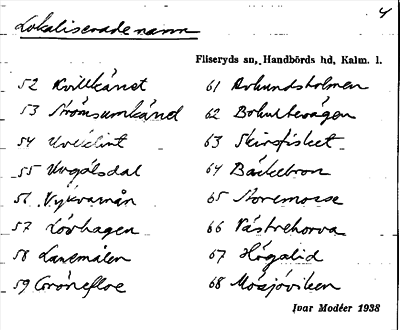 4
Lokaliserade namn
Fliseryds sn, Handbörds hd, Kalm. l.
52 Kvillkänet
53
54
55 Ungölsdal
56
57 Lövhagen
58 Lanemålen
59 Grönefloe
61
62 Bohultevägen
63
64 Bäckebron
65 Storemosse
66 Västrehorva
67 Högalid
68 Mosjöviken
Ivar Modéer 1938